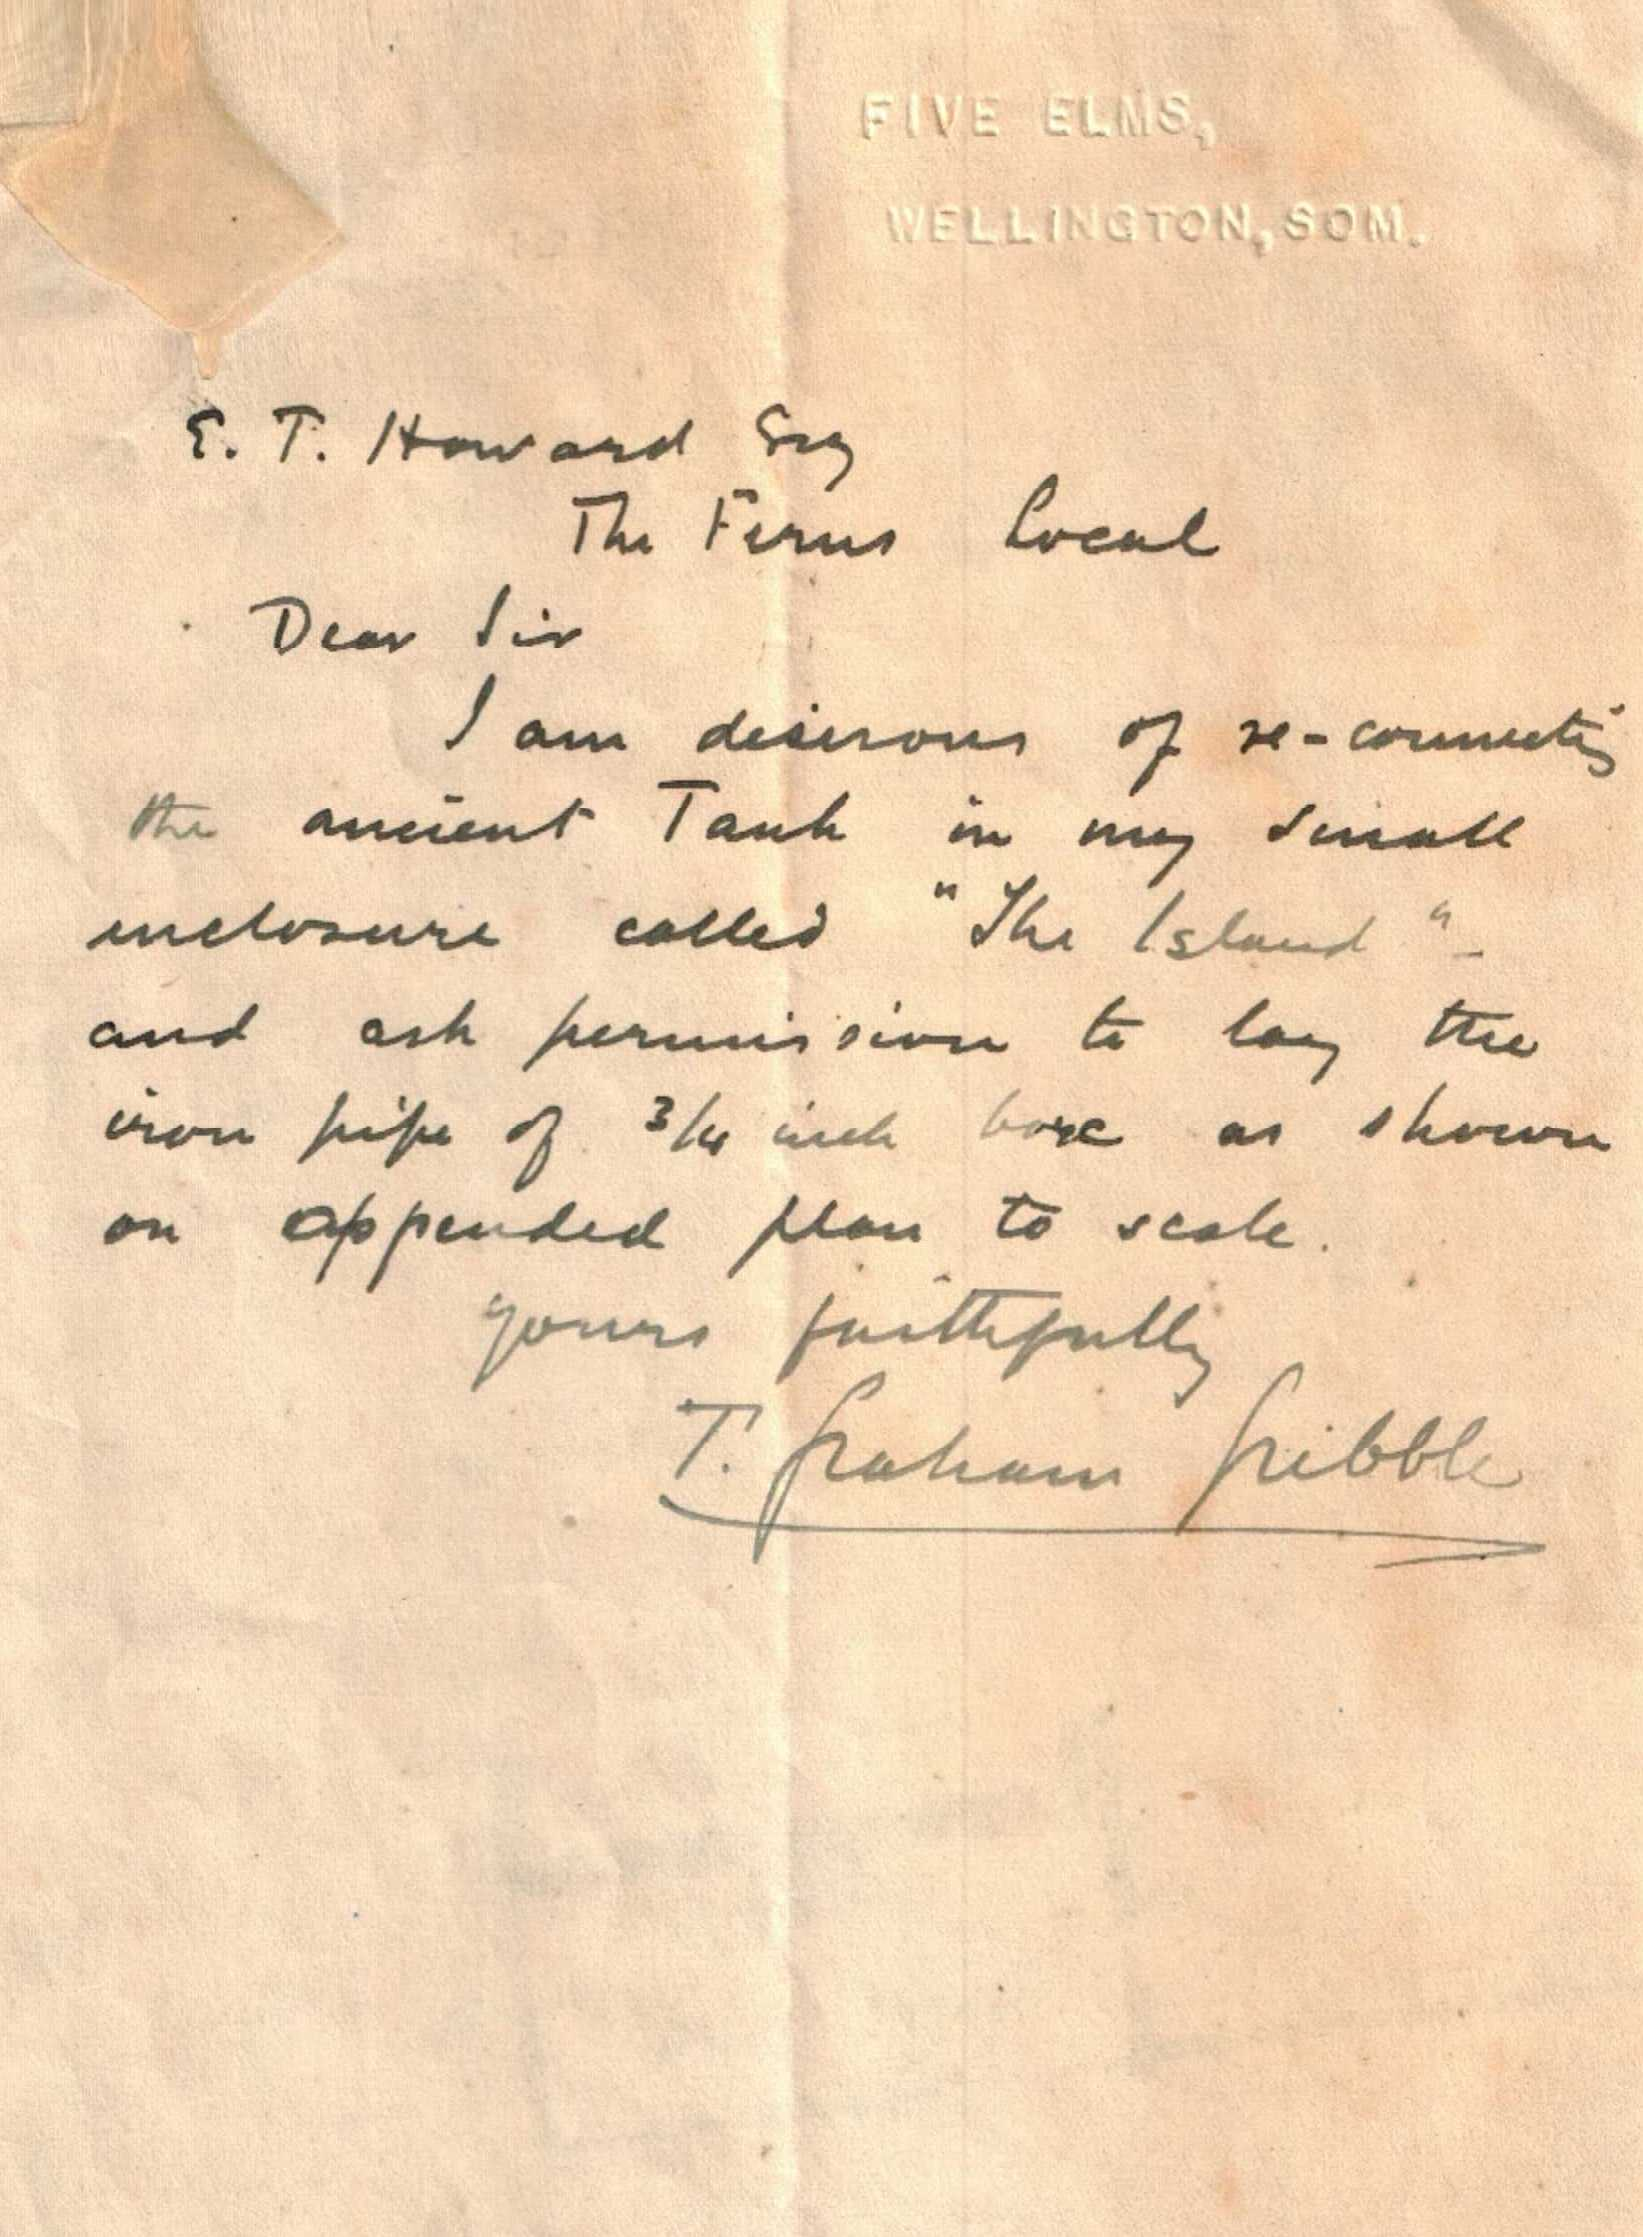 FIVE ELMS,
WELLINGTON, SOM.
E. T. Howard Esq
The Ferns Local
Dear Sir
I am desirous of re-connecting
the ancient Tank in my small
enclosure called "The Island" -
and ask permission to lay the
iron pipe of 3/4 inch bore as shown
on appended plan to scale.
Yours faithfully
T. Graham Gribble